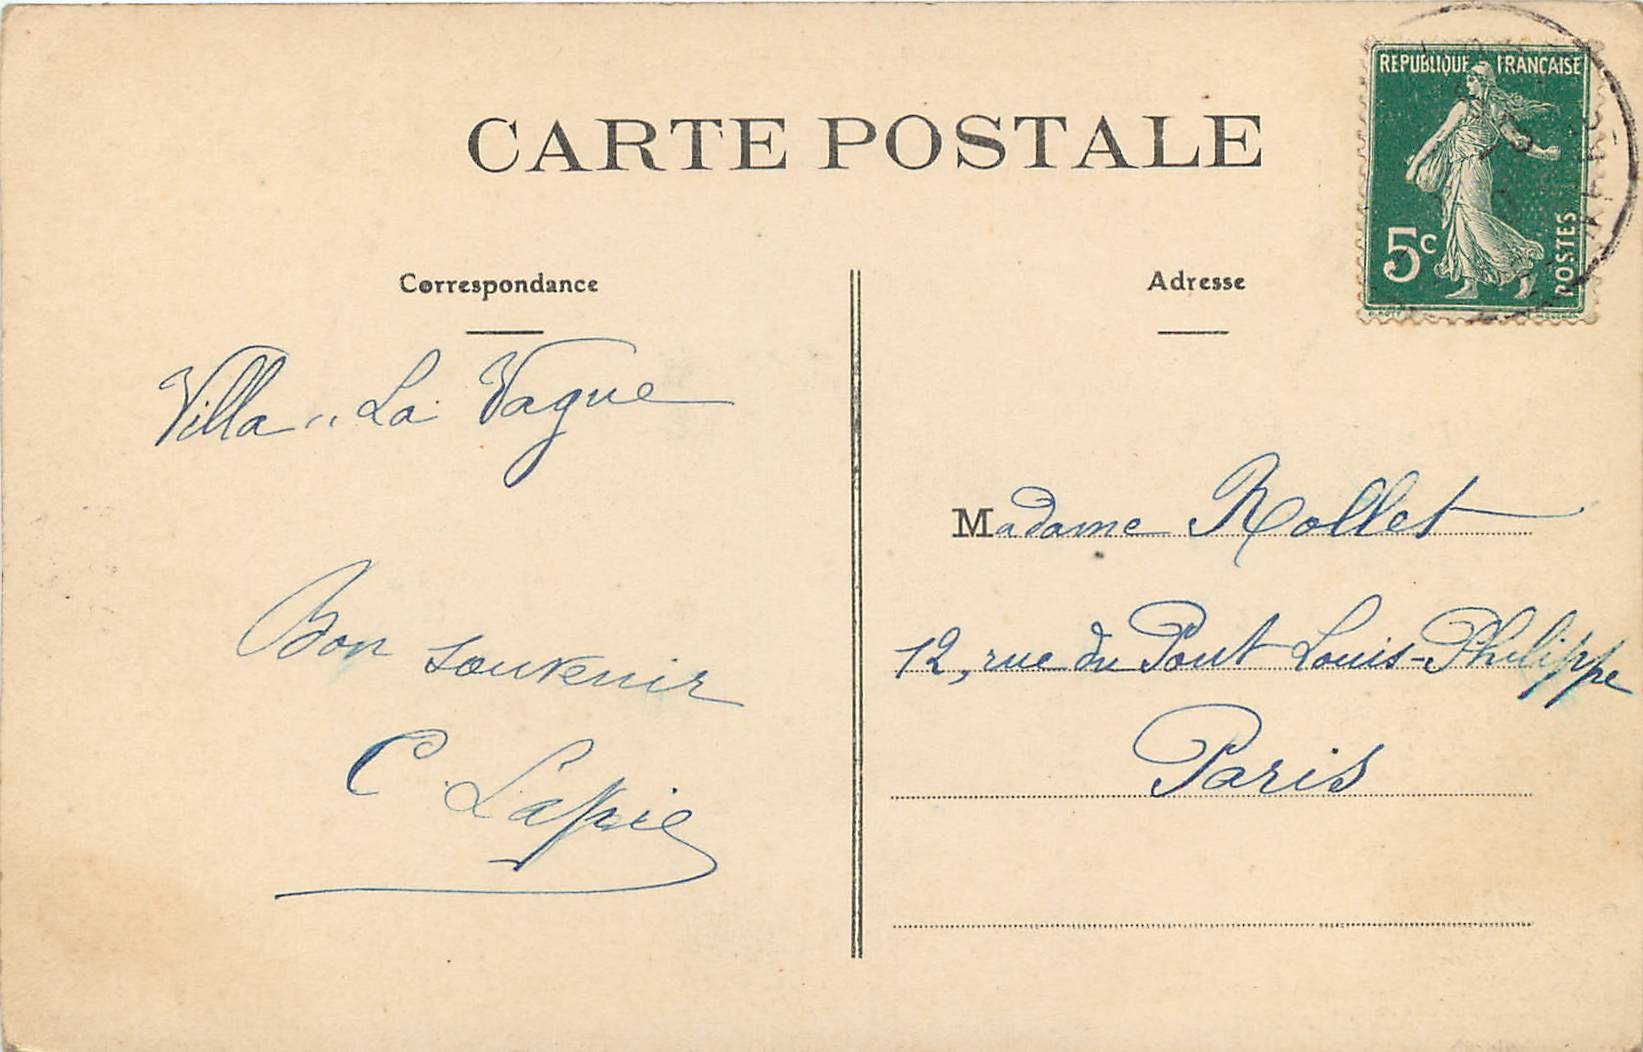 CARTE POSTALE
REPUBLIQUE FRANCAISE
5c
POSTES
Correspondance
Villa "La Vague
Bon souvenir
C Lapie
Adresse
Madame Rollet
12, rue du Pont Louis-Philippe
Paris